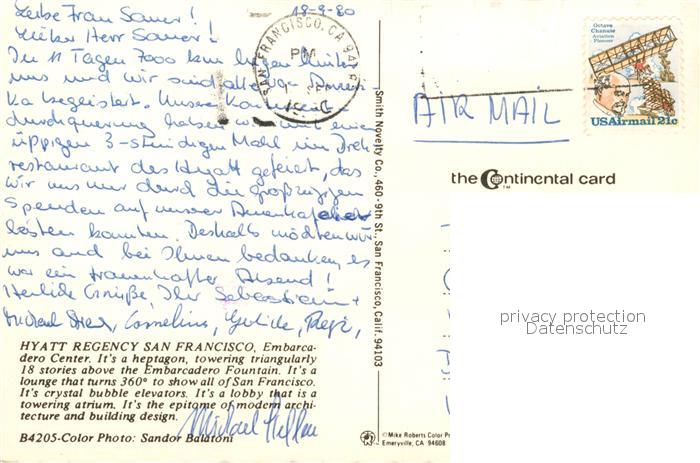 18-9-80
Liebe Frau Sauer!
Lieber Herr Sauer!
In 11 Tagen 7000 km liegen hinter
uns und wir sind alle von Ameri-
ka begeistert. Unsere Kontinent-
durchquerung haben wir mit einem
üppigen 3-stündigen Mahl im Dreh-
restaurant des Hyatt gefeiert, das
wir uns nur durch die großzügigen
Spenden auf unserer Amerika
leisten konnten. Deshalb möchten wir
uns auch bei Ihnen bedanken, es
war ein traumhafter Abend!
Herzliche Grüße, Ihr Sebastian +
Michael, Cornelius,
HYATT REGENCY SAN FRANCISCO, Embarca-
dero Center. It's a heptagon, towering triangularly
18 stories above the Embarcadero Fountain. It's a
lounge that turns 360° to show all of San Francisco.
It's crystal bubble elevators. It's a lobby that is a
towering atrium. It's the epitome of modern archi-
tecture and building design.
Michael
B4205-Color Photo: Sandor Balatoni
Smith Novelty Co., 460-9th St., San Francisco, Calif. 94103
SAN FRANCISCO, CA
PM
AIR MAIL
Octave
Chanute
Aviation
Pioneer
USAirmail 21c
the Continental card
privacy protection
Datenschutz
©Mike Roberts Color P
Emeryville, CA 94608